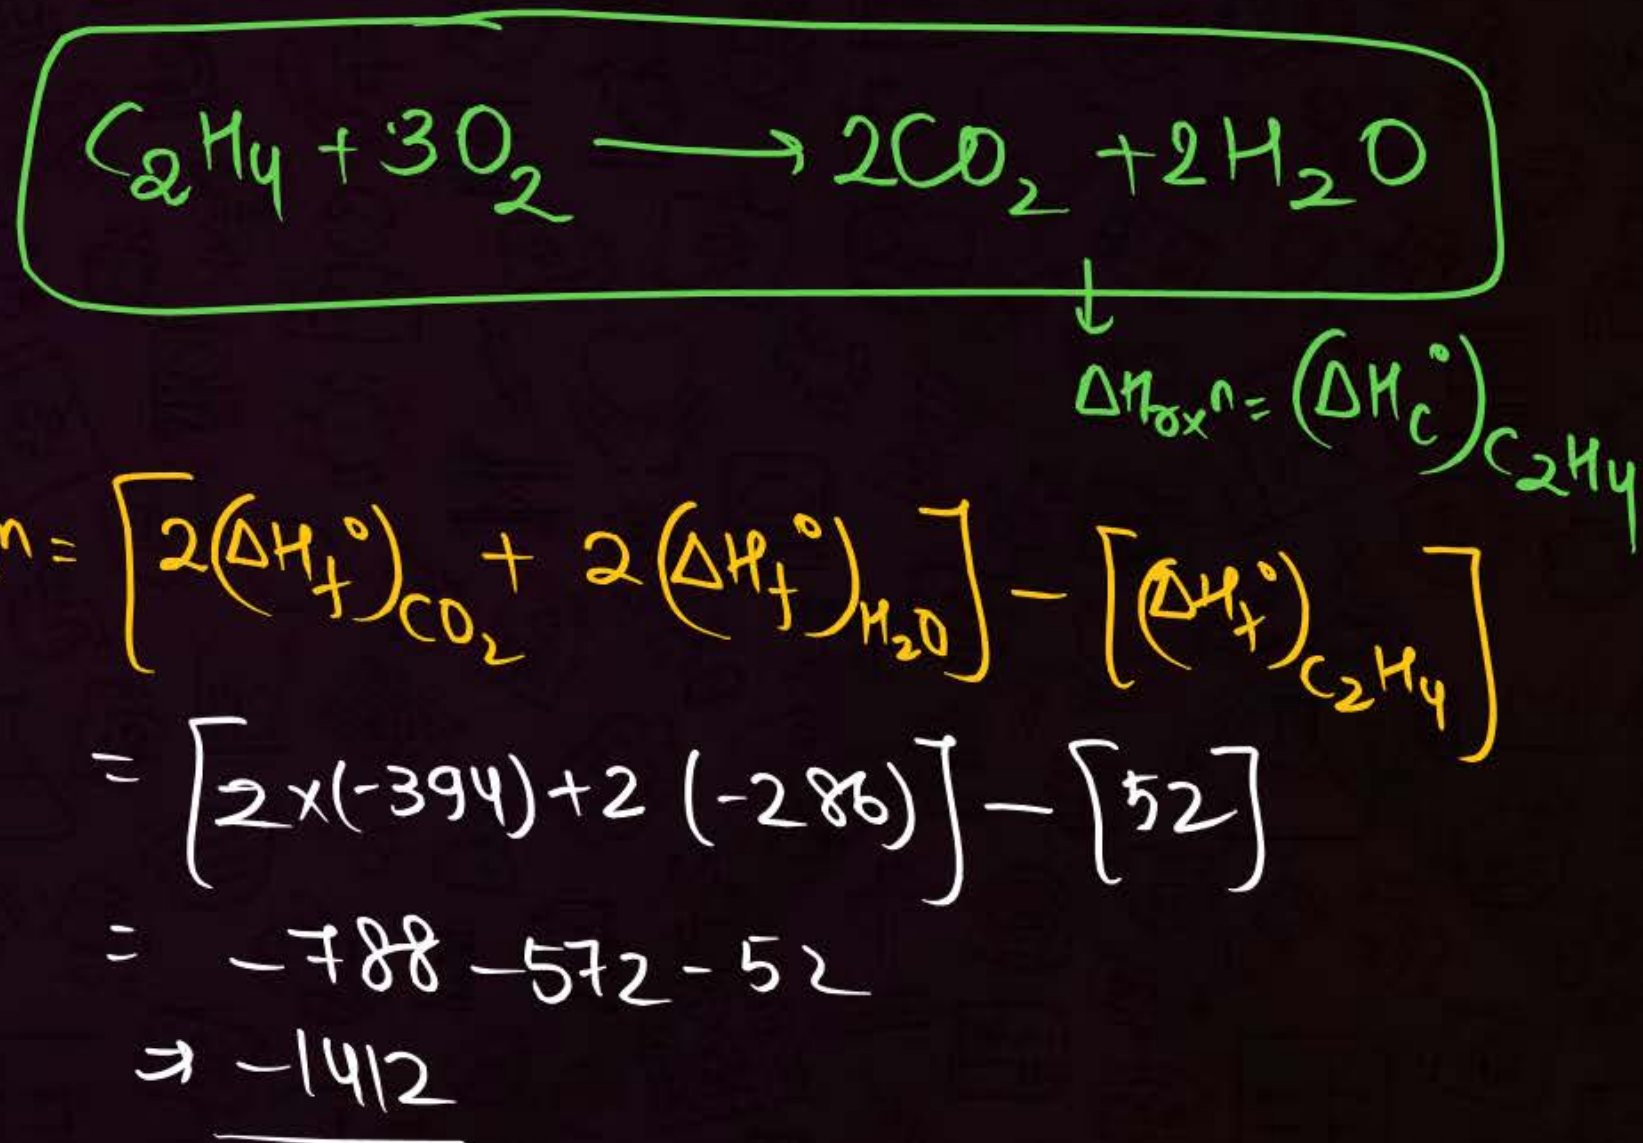 C₂H₄ + 3O₂ → 2CO₂ + 2H₂O
↓
ΔHrxⁿ = (ΔH°c)C₂H₄
n = [2(ΔHf°)CO₂ + 2(ΔHf°)H₂O] - [(ΔHf°)C₂H₄]
= [2×(-394)+2 (-286)] - [52]
= -788 -572 - 52
⇒ -1412